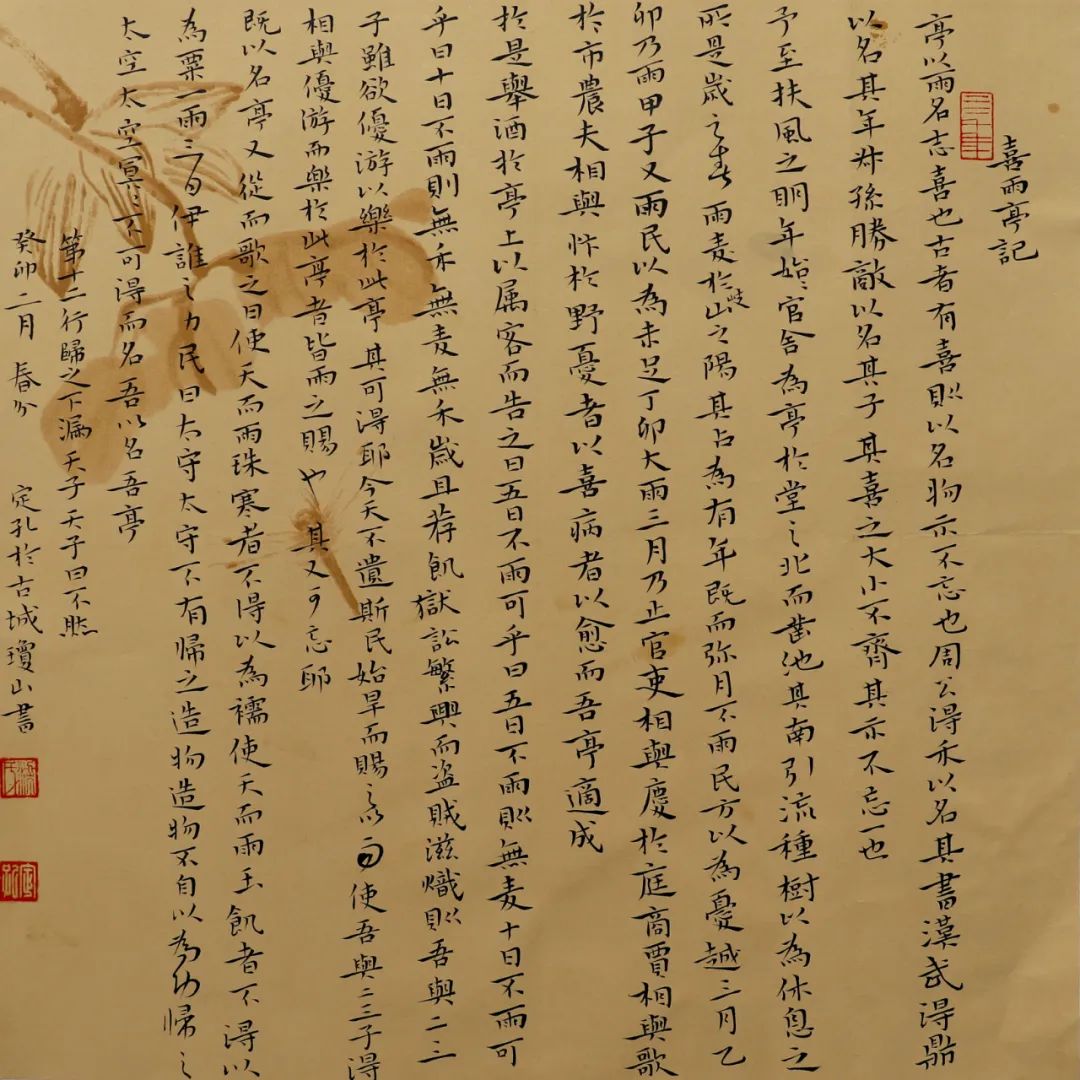 喜雨亭記
亭以雨名志喜也古者有喜則以名物示不忘也周公得禾以名其書漢武得鼎
以名其年叔孫勝敵以名其子其喜之大小不齊其示不忘一也
予至扶風之明年始治官舍為亭於堂之北而鑿池其南引流種樹以為休息之
所是歲之春雨麦於岐山之陽其占為有年既而弥月不雨民方以為憂越三月乙
卯乃雨甲子又雨民以為未足丁卯大雨三月乃止官吏相與慶於庭商賈相與歌
於市農夫相與忭於野憂者以喜病者以愈而吾亭適成
於是舉酒於亭上以属客而告之曰五日不雨可乎曰五日不雨則無麦十日不雨可
乎曰十日不雨則無禾無麦無禾歲且荐飢獄訟繁興而盗賊滋熾則吾與二三
子雖欲優游以樂於此亭其可得耶今天不遺斯民始旱而賜之以雨使吾與二三子得
相與優游而樂於此亭者皆雨之賜也其又可忘耶
既以名亭又從而歌之曰使天而雨珠寒者不得以為襦使天而雨玉飢者不得以
為粟一雨三日伊誰之力民曰太守太守不有歸之造物造物不自以為功歸之
太空太空冥冥不可得而名吾以名吾亭
第十二行歸之下漏天子天子曰不然
癸卯二月春分定孔於古城瓊山書